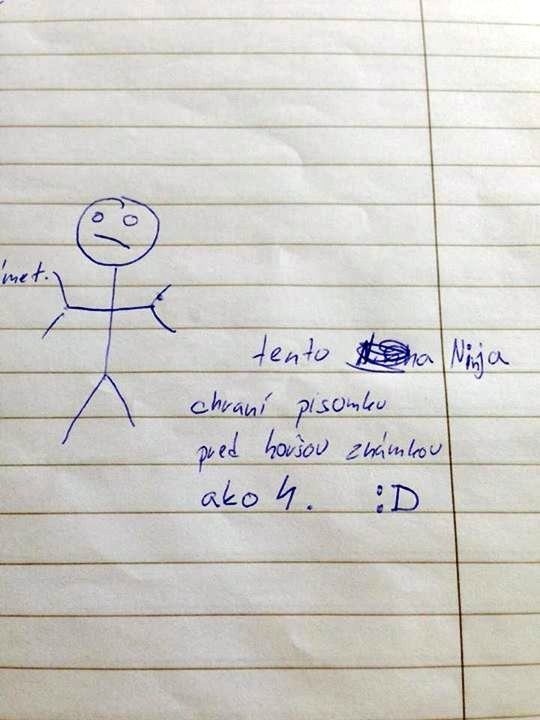 met.
tento Ninja
chraní písomku
pred horšou známkou
ako 4. :D